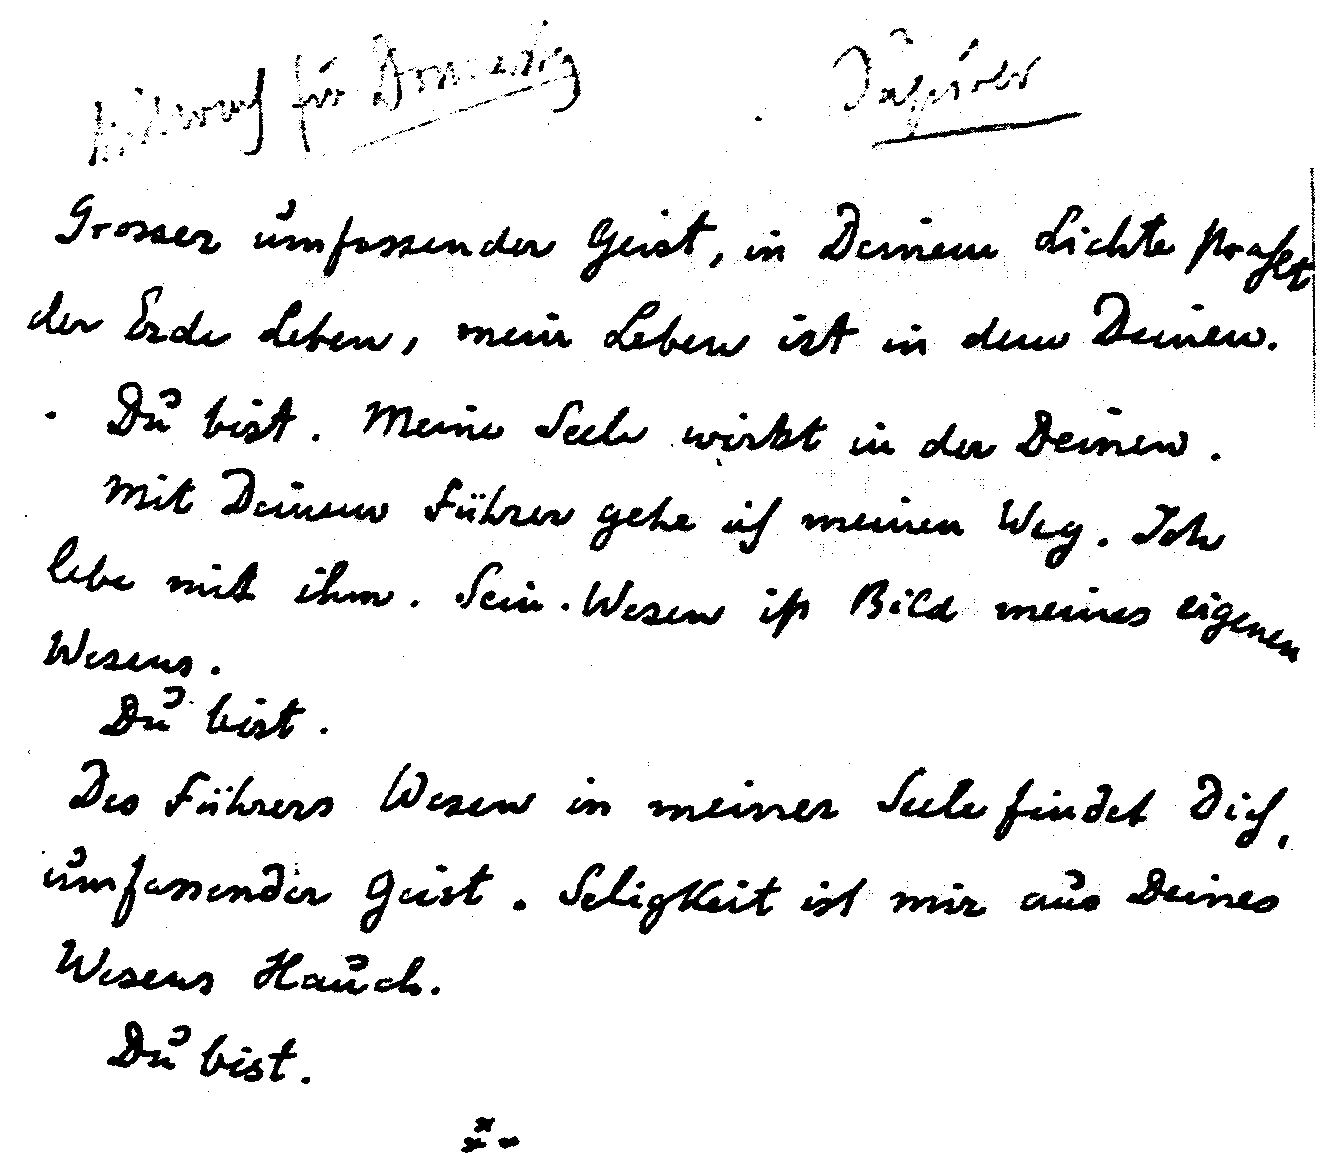 Mittwoch für Donnerstag Jupiter
Grosser umfassender Geist, in Deinem Lichte strahlt
der Erde Leben, mein Leben ist in dem Deinen.
Du bist. Meine Seele wirkt in der Deinen.
Mit Deinem Führer gehe ich meinen Weg. Ich
lebe mit ihm. Sein Wesen ist Bild meines eigenen
Wesens.
Du bist.
Des Führers Wesen in meiner Seele findet Dich,
umfassender Geist. Seligkeit ist mir aus Deines
Wesens Hauch.
Du bist.